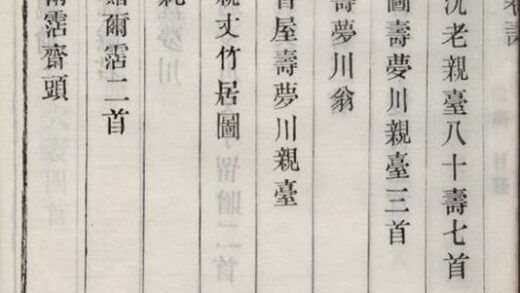 老親臺八十壽七首
圖壽夢川親臺三首
壽夢川翁
屋壽夢川親臺
親丈竹居圖
爾霑二首
霑齋頭